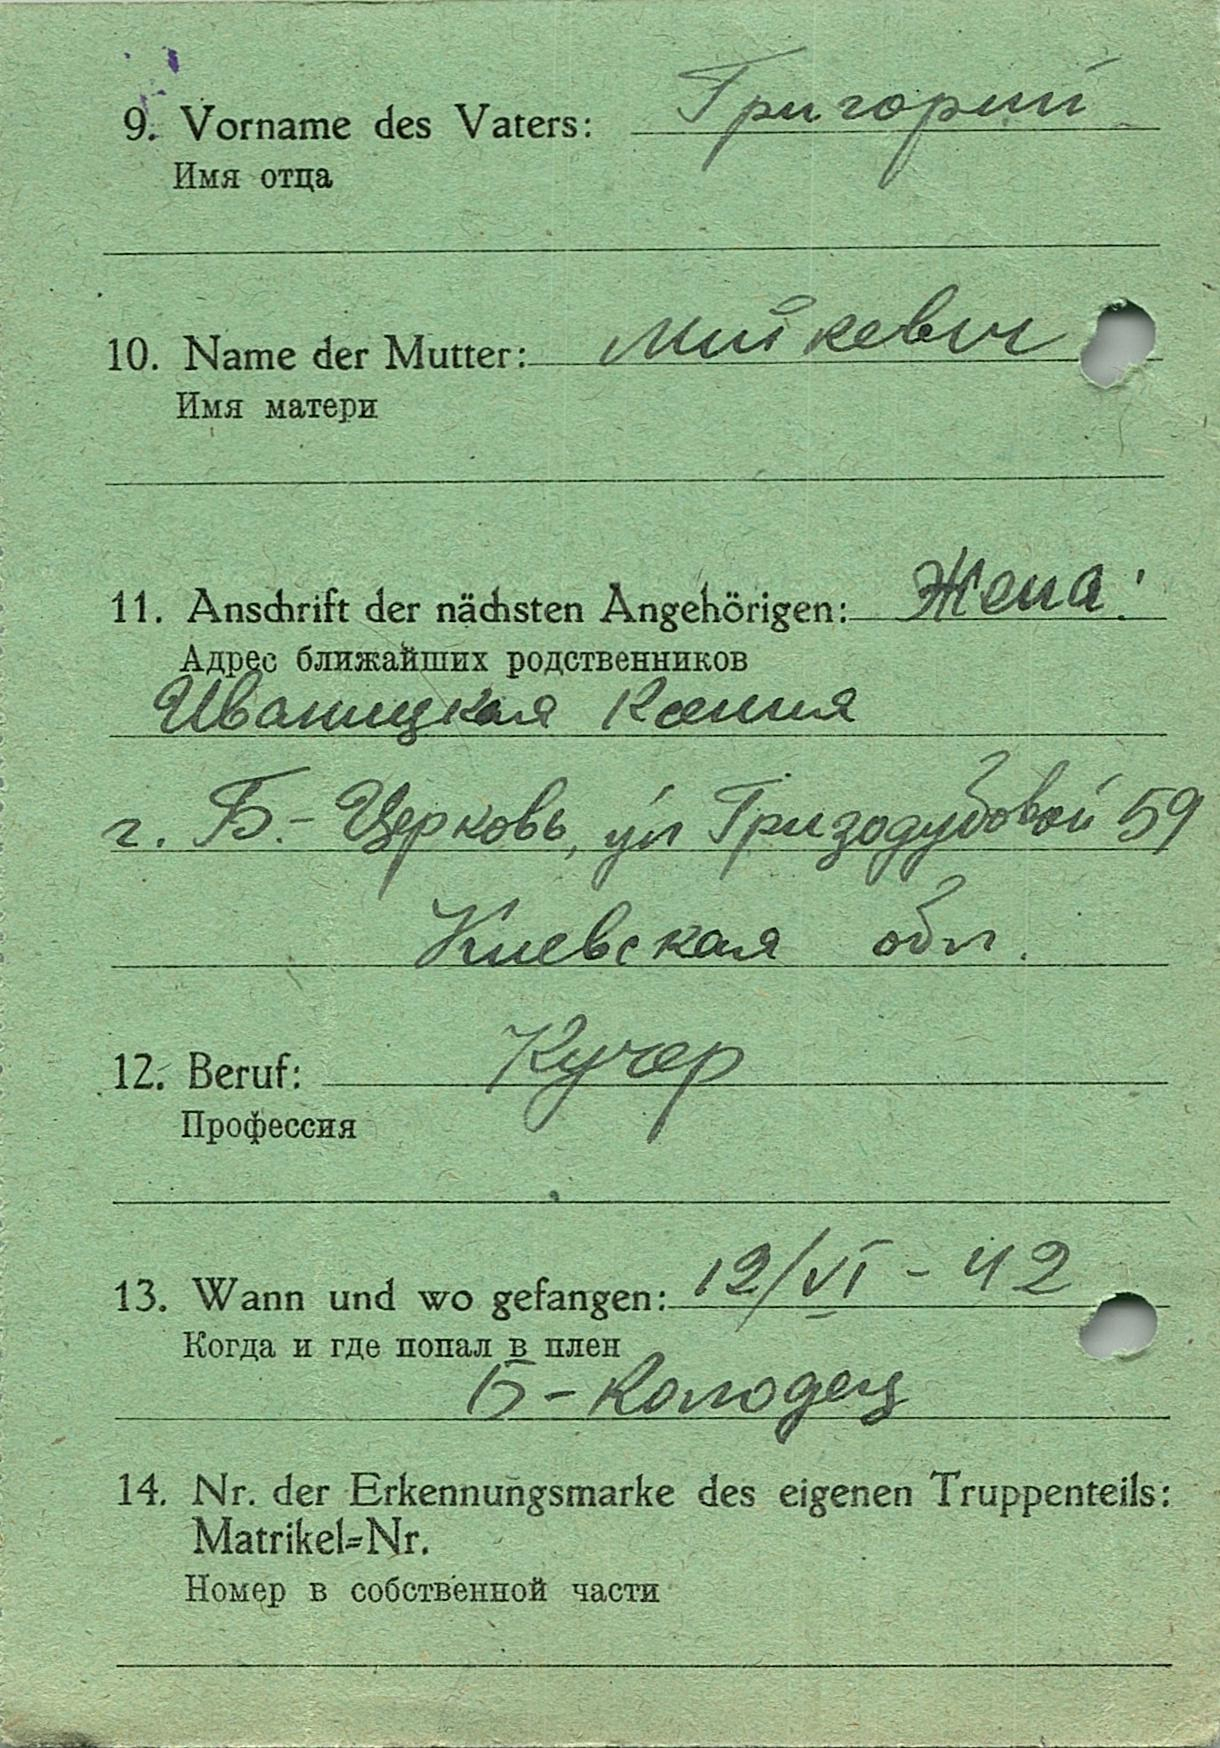 9. Vorname des Vaters: Григорий
Имя отца
10. Name der Mutter: Мийкевич
Имя матери
11. Anschrift der nächsten Angehörigen: Жена:
Адрес ближайших родственников
Иваницкая Ксения
г. Б.-Церковь, ул Гризодубовой 59
Киевская обл.
12. Beruf: Кучер
Профессия
13. Wann und wo gefangen: 12/VI - 42
Когда и где попал в плен
Б-Колодец
14. Nr. der Erkennungsmarke des eigenen Truppenteils:
Matrikel=Nr.
Номер в собственной части